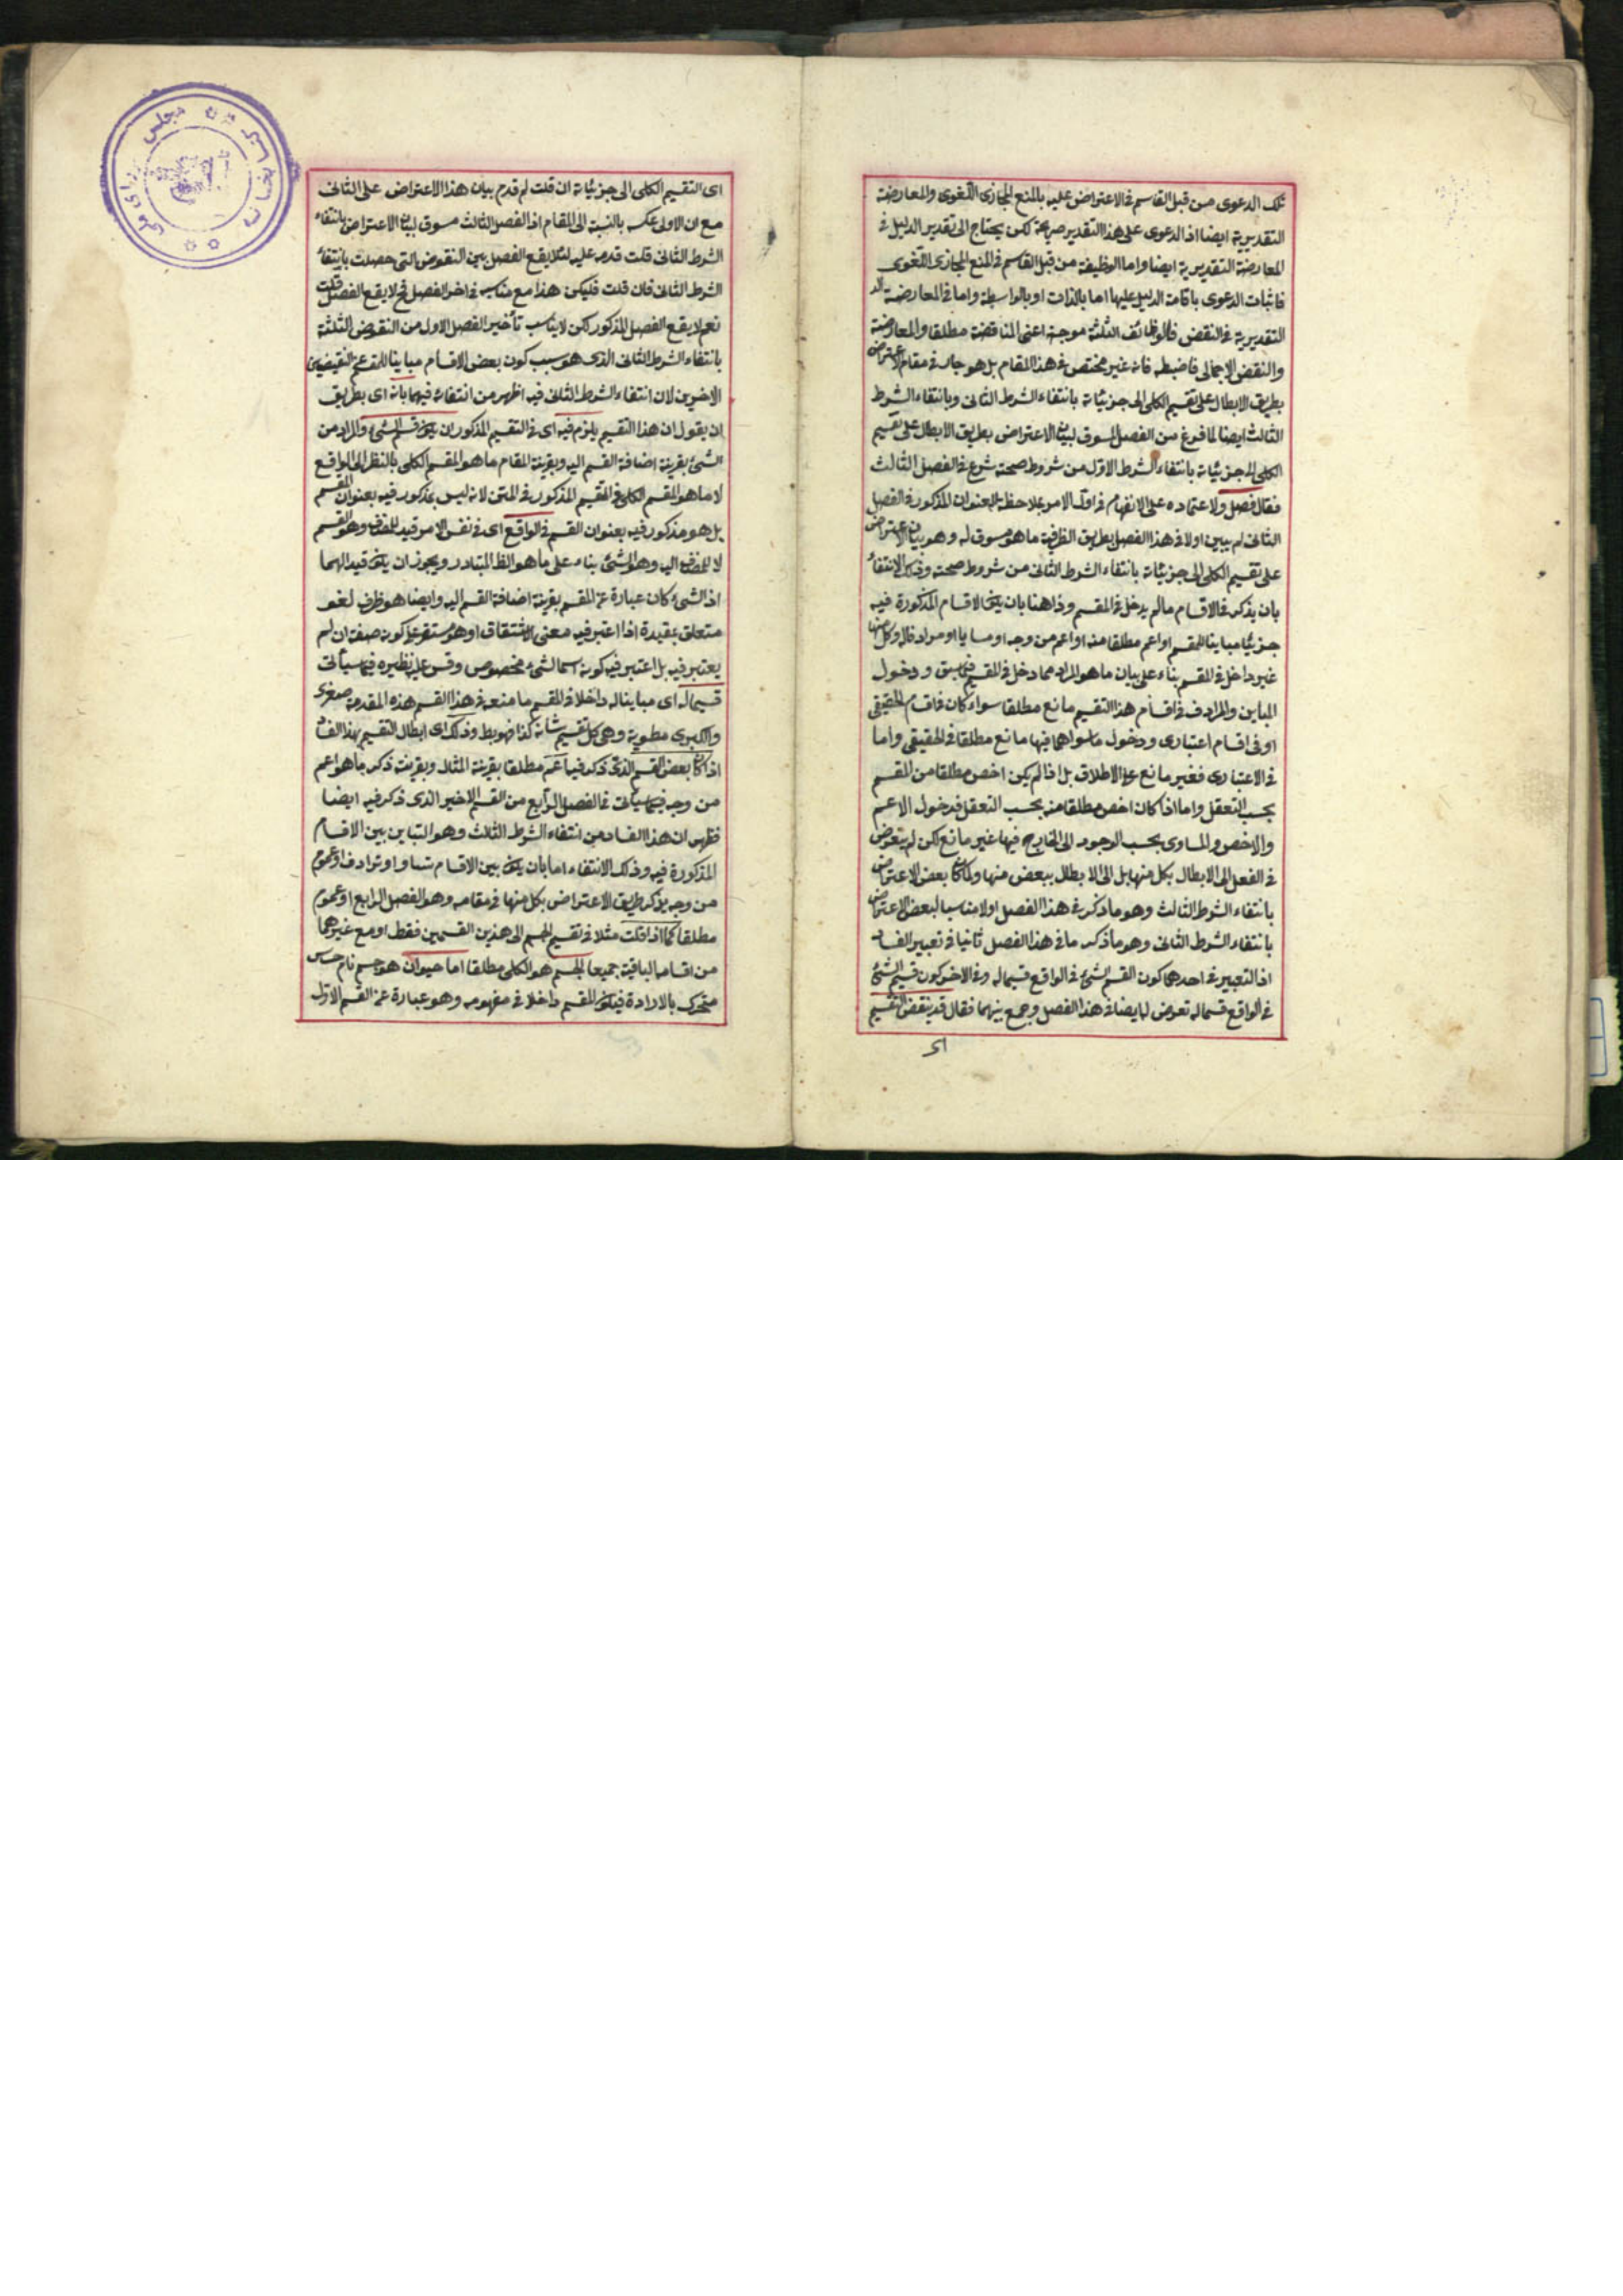 تلك الدعوى من قبل القاسم فى الاعتراض عليه بالمنع المجازى اللغوى والمعارضة
التقديرية ايضا اذ الدعوى على هذا التقدير صريحة لكن يحتاج الى تقدير الدليل فى
المعارضة التقديرية ايضا واما الوظيفة من قبل القاسم فى المنع المجازى اللغوى
فاثبات الدعوى باقامة الدليل عليها اما بالذات او بالواسطة واما فى المعارضة
التقديرية فى النقض فالوظائف الثلثة موجهة اعنى المناقضة مطلقا والمعارضة
والنقض الاجمالى فاضبطه فانه غير مختص فى هذا المقام بل هو جار فى مقام الاعتراض
بطريق الابطال على تقسيم الكلى الى جزئياته بانتفاء الشرط الثانى وبانتفاء الشرط
الثالث ايضا لما فرغ من الفصل المسوق لبيان الاعتراض بطريق الابطال على تقسيم
الكلى الى جزئياته بانتفاء الشرط الاول من شروط صحته شرع فى الفصل الثالث
فقال فصل ولاعتماده على الانفهام فى اول الامر بملاحظة العنوان المذكور فى الفصل
الثانى لم يبين اولا فى هذا الفصل بطريق الظرفية ما هو مسوق له وهو بيان الاعتراض
على تقسيم الكلى الى جزئياته بانتفاء الشرط الثانى من شروط صحته وذلك الانتفاء
بان يذكر فى الاقسام مالم يدخل فى المقسم وذا هنا بان يكون الاقسام المذكورة فيه
جزئيا مباينا للمقسم او اعم مطلقا منه او اعم من وجه او مساويا او مرادفا له وكل منها
غير داخل فى المقسم بناء على بيان ما هو المراد مما دخل فى المقسم فيما سبق ودخول
المباين والمرادف فى اقسام هذا التقسيم مانع مطلقا سواء كان فى اقسام الحقيقى
او فى اقسام اعتبارى ودخول ما سواهما فيها مانع مطلقا فى الحقيقى واما
فى الاعتبارى فغير مانع على الاطلاق بل اذا لم يكن اخص مطلقا من المقسم
بحسب التعقل واما اذا كان اخص مطلقا منه بحسب التعقل فدخول الاعم
والاخص والمساوى بحسب الوجود الى الخارج فيها غير مانع لكن لم يتعرض
فى الفعل الى الابطال بكل منها بل الى الابطال ببعض منها ولما كان بعض الاعتراض
بانتفاء الشرط الثالث وهو ما ذكر فى هذا الفصل اولا مناسبا لبعض الاعتراض
بانتفاء الشرط الثانى وهو ما ذكر ما فى هذا الفصل ثانيا فى تعبير الفساد
اذ التعبير فى احدهما كون القسم الشئ فى الواقع قسيما له وفى الاخر كون قسيم الشئ
فى الواقع قسما له تعرض لها ايضا فى هذا الفصل وجمع بينهما فقال قد ينقض التقسيم
اى
اى التقسيم الكلى الى جزئياته ان قلت لم قدم بيان هذا الاعتراض على الثانى
مع ان الاولى عكسه بالنسبة الى المقام اذ الفصل الثالث مسوق لبيان الاعتراض بانتفاء
الشرط الثانى قلت قدمه عليه لئلا يقع الفصل بين النقوض التى حصلت بانتفاء
الشرط الثانى فان قلت فليكن هذا مع مناسبه فى اخر الفصل فح لا يقع الفصل قلت
نعم لا يقع الفصل المذكور لكن لا يناسب تأخير الفصل الاول من النقوض الثلثة
بانتفاء الشرط الثانى الذى هو بسبب كون بعض الاقسام مباينا للمقسم عن النقيضين
الاخرين لان انتفاء الشرط الثانى فيه اظهر من انتفائه فيهما بانه اى بطريق
ان يقول ان هذا التقسيم يلزم فيه اى فى التقسيم المذكور ان يكون قسم الشئ والمراد من
الشئ بقرينة اضافة القسم اليه وبقرينة المقام ما هو المقسم الكلى بالنظر الى الواقع
لا ما هو المقسم الكلى فى التقسيم المذكور فى المتن لانه ليس بمذكور فيه بعنوان المقسم
بل هو مذكور فيه بعنوان القسم فى الواقع اى فى نفس الامر قيد للمضاف وهو القسم
لا للمضاف اليه وهو الشئ بناء على ما هو الظ المتبادر ويجوز ان يكون قيدا لهما
اذ الشئ كان عبارة عن المقسم بقرينة اضافة القسم اليه وايضا هو ظرف لغو
متعلق بقيدة اذا اعتبر فيه معنى الاشتقاق او هو مستقر على كونه صفة ان لم
يعتبر فيه بل اعتبر فيه كونه اسما لشئ مخصوص وقس عليه نظيره فيما سيأتى
قسيما له اى مباينا له داخلا فى المقسم ما منعه فى هذا القسم هذه المقدمة صغرى
والكبرى مطوية وهى كل تقسيم شانه كذا فهو بط وذلك اى ابطال التقسيم بهذا الفساد
اذا كان بعض القسم الذى ذكر فيه اعم مطلقا بقرينة المثال وبقرينة ذكر ما هو اعم
من وجه فيما سيأتى فى الفصل الرابع من القسم الاخير الذى ذكر فيه ايضا
فظهر ان هذا الفساد من انتفاء الشرط الثالث وهو التباين بين الاقسام
المذكورة فيه وذلك الانتفاء اما بان يكون بين الاقسام تساو او ترادف او عموم
من وجه يذكر طريق الاعتراض بكل منها فى مقامه وهو الفصل الرابع او عموم
مطلقا كما اذا قلت مثلا فى تقسيم الجسم الى هذين القسمين فقط او مع غيرهما
من اقسامه الباقية جميعا الجسم هو الكلى مطلقا اما حيوان هو جسم نام حساس
متحرك بالارادة فيكون المقسم داخلا فى مفهومه وهو عبارة عن القسم الاول
مجلس